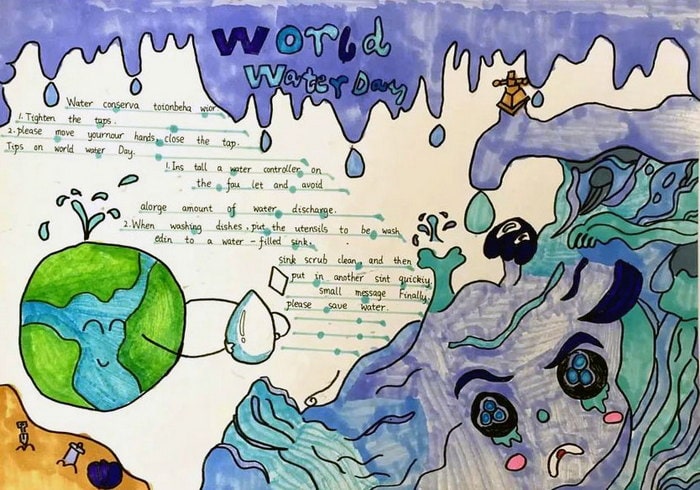 World
Water Day
Water conserva totonbeha wior
1. Tighten the taps.
2. please move yournour hands, close the tap.
Tips on world water Day.
1. Ins tall a water controller on
the fau let and avoid
alorge amount of water discharge.
2. When washing dishes, put the utensils to be wash
edin to a water-filled sink.
sink scrub clean, and then
put in another sint quickiy,
small message Finally,
please save water.